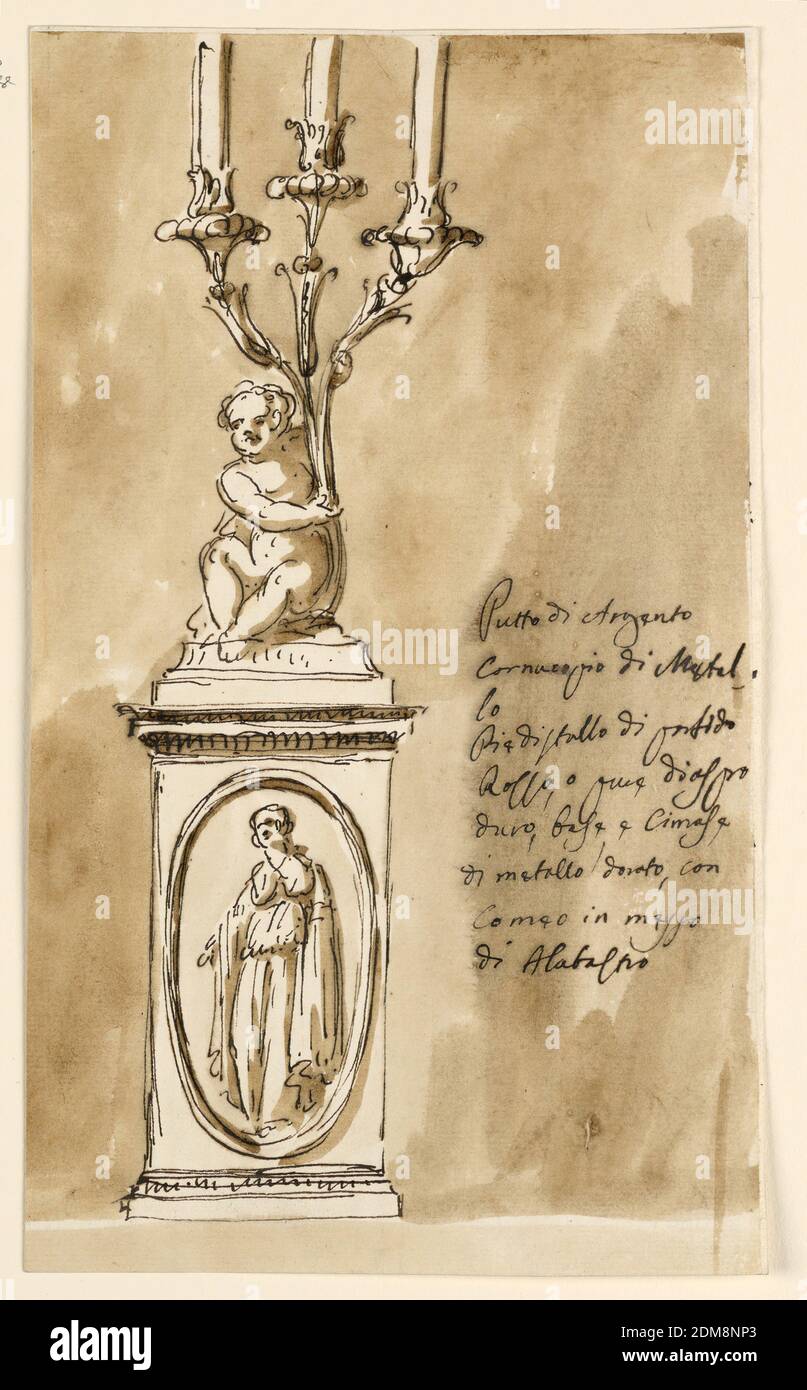 Putto di Argento
Cornucopio di Metal-
lo
Piedistallo di porfido
Rosso, o pure diaspro
duro, base e Cimase
di metallo dorato, con
Cameo in messo
di Alabastro
alamy
Image ID: 2DM8NP3
www.alamy.com